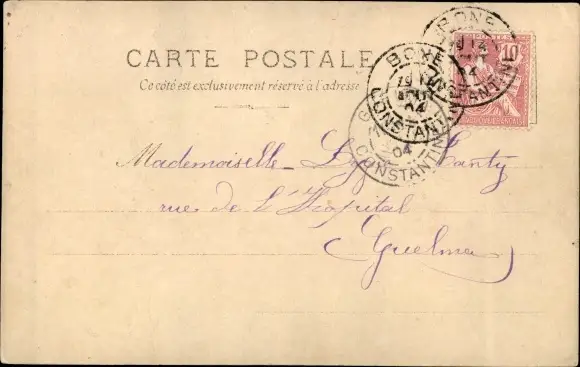 CARTE POSTALE
Ce côté est exclusivement réservé à l'adresse
BONE
CONSTANTINE
04
BONE
CONSTANTINE
04
CONSTANTINE
04
10
Mademoiselle
rue de l'Hôpital
Guelma